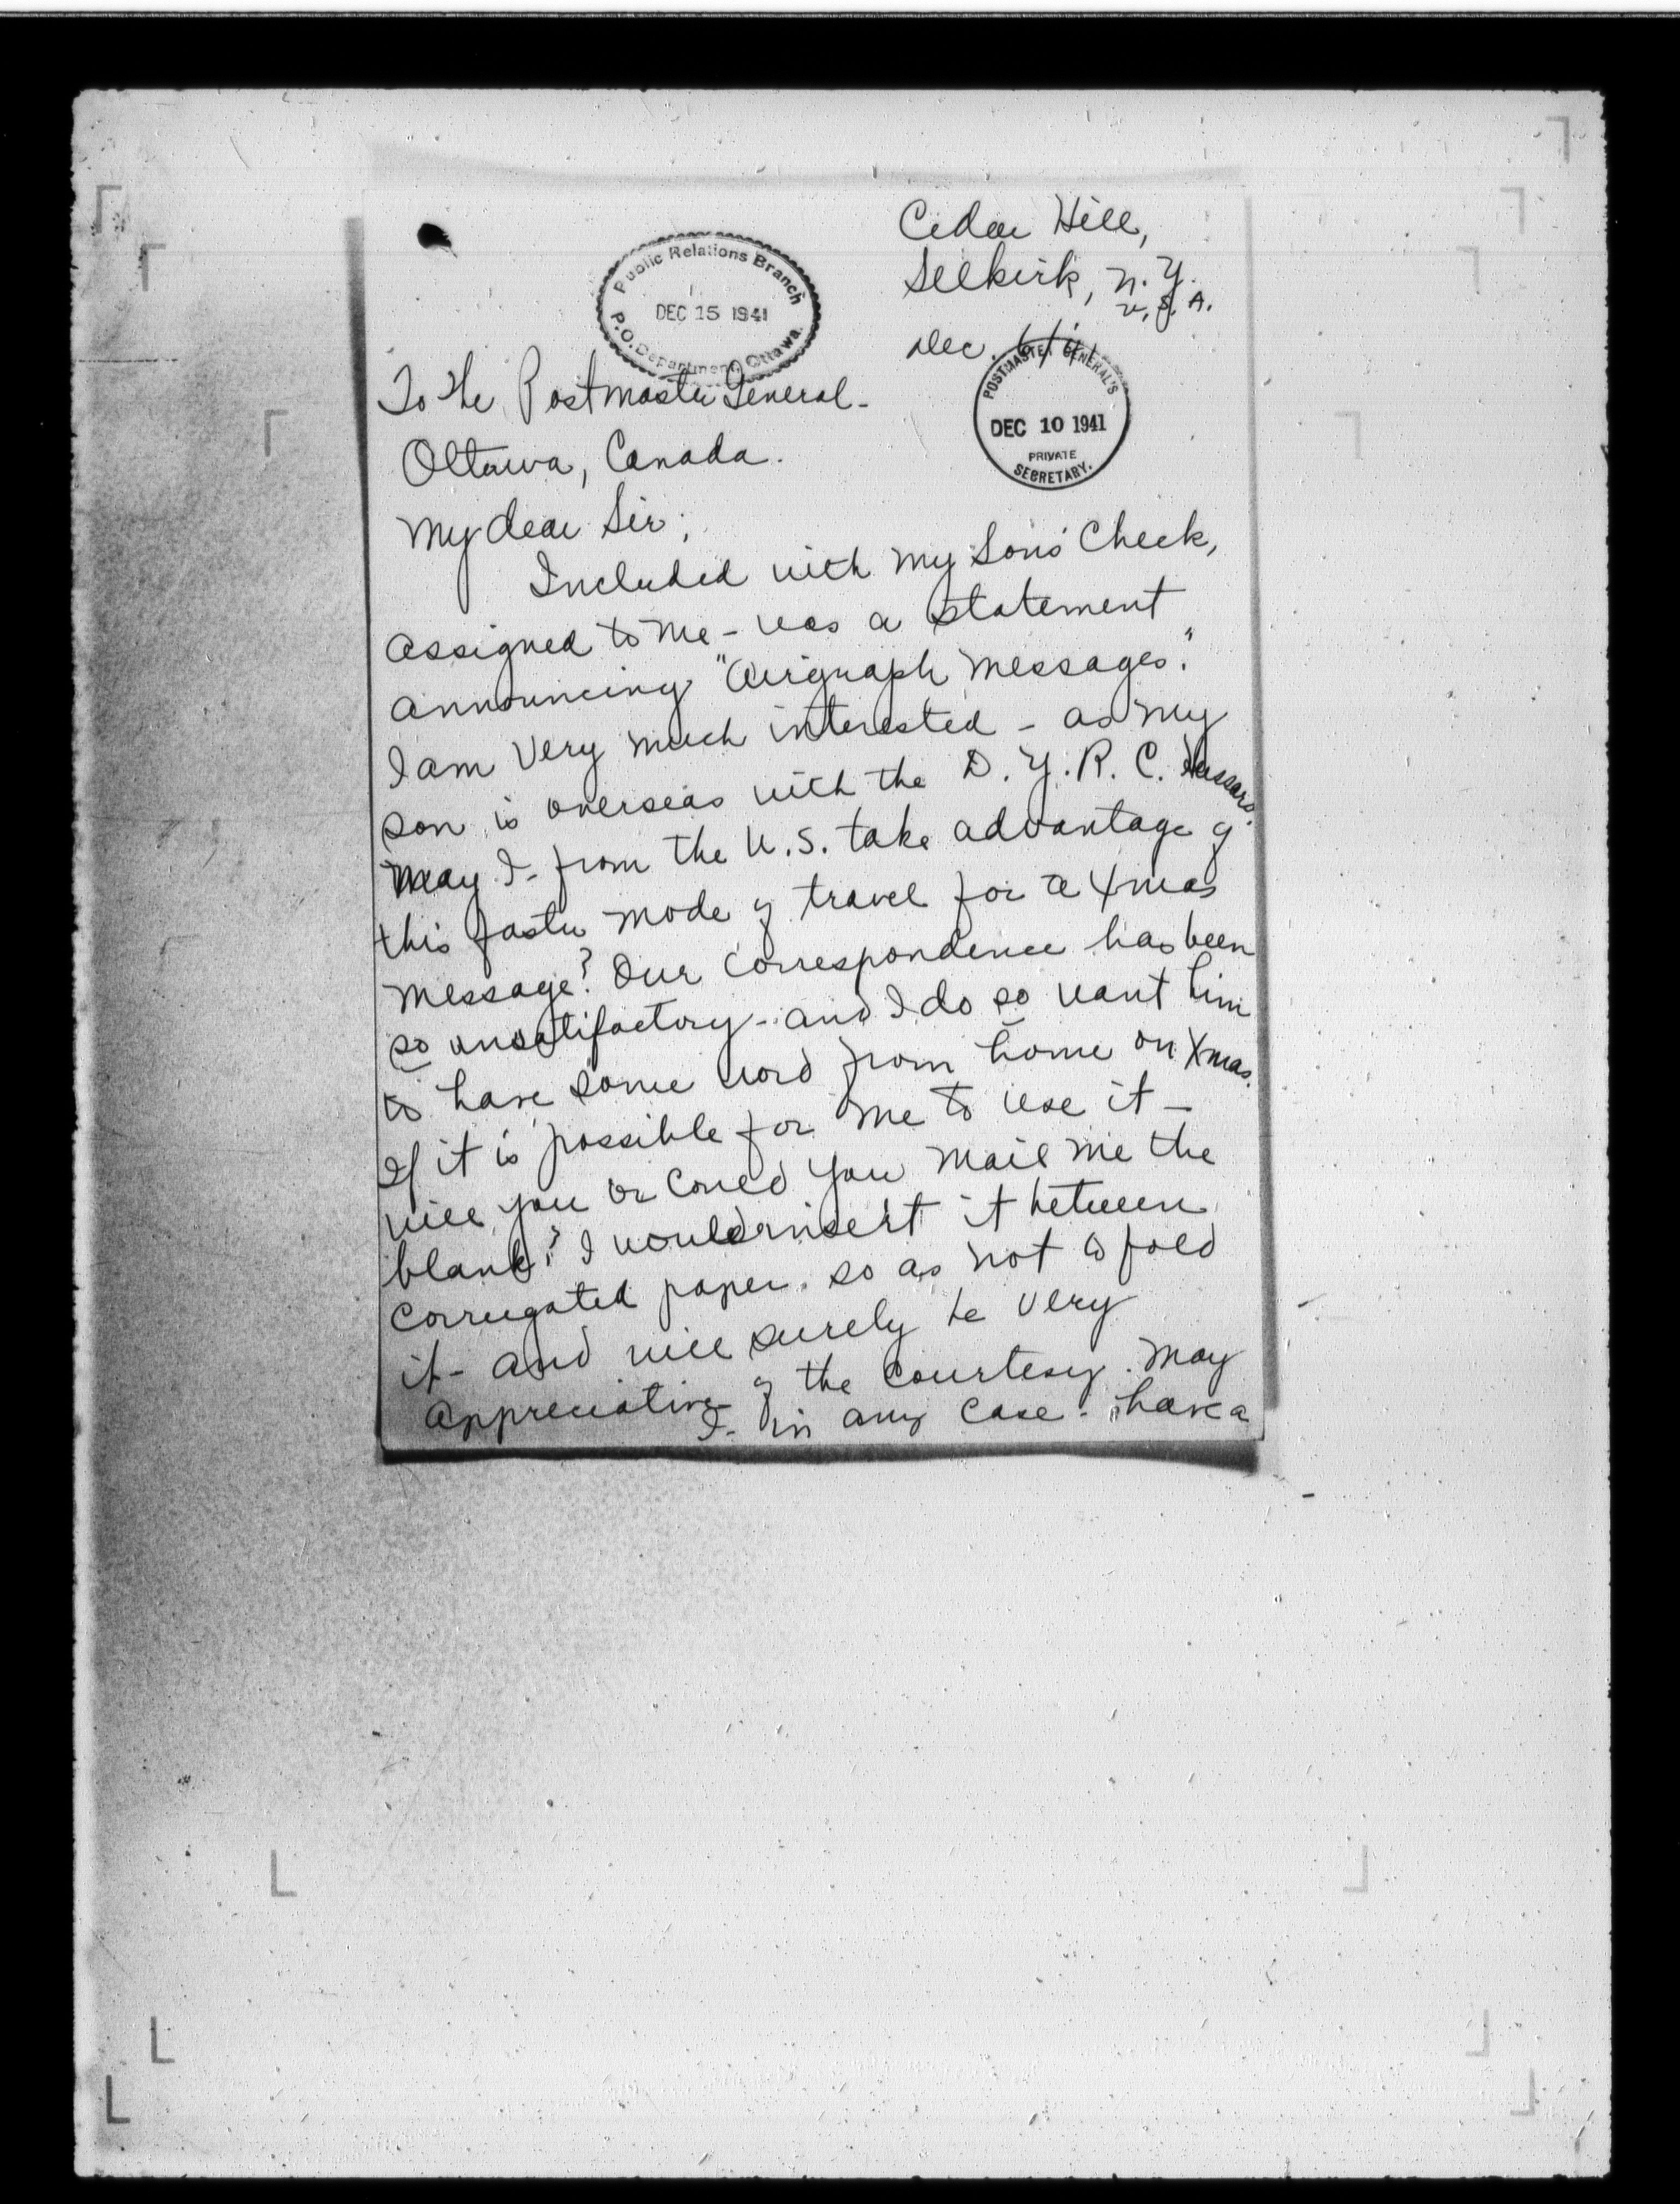 Cedar Hill,
Selkirk, N.Y.
U.S.A.
Dec. 6/41
Public Relations Branch
DEC 15 1941
P.O. Department, Ottawa.
POSTMASTER GENERAL'S
DEC 10 1941
PRIVATE
SECRETARY.
To the Postmaster General -
Ottawa, Canada.
My dear Sir;
Included with my Sons' Check,
assigned to me - was a statement
announcing "Airgraph Messages."
I am very much interested - as my
son is overseas with the D.Y.R.C. Hussars.
May I - from the U.S. take advantage of
this faster mode of travel for a Xmas
message? Our correspondence has been
so unsatifactory - and I do so want him
to have some word from home on Xmas.
If it is possible for me to use it -
will you or could you mail me the
blank? I would insert it between
corrugated paper. so as not to fold
it - and will surely be very
appreciative of the courtesy. May
I - in any case - have a